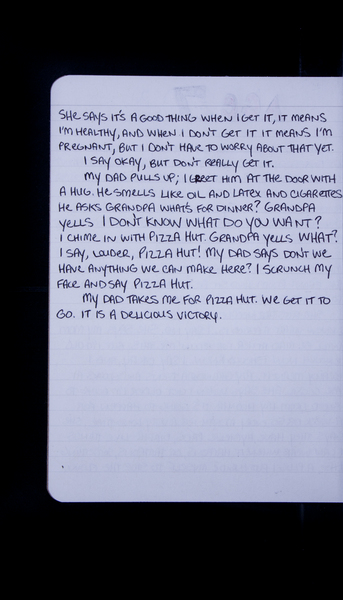 SHE SAYS IT'S A GOOD THING WHEN I GET IT, IT MEANS
I'M HEALTHY, AND WHEN I DON'T GET IT IT MEANS I'M
PREGNANT, BUT I DON'T HAVE TO WORRY ABOUT THAT YET.
I SAY OKAY, BUT DON'T REALLY GET IT.
MY DAD PULLS UP; I GREET HIM AT THE DOOR WITH
A HUG. HE SMELLS LIKE OIL AND LATEX AND CIGARETTES
HE ASKS GRANDPA WHAT'S FOR DINNER? GRANDPA
YELLS I DON'T KNOW WHAT DO YOU WANT?
I CHIME IN WITH PIZZA HUT. GRANDPA YELLS WHAT?
I SAY, LOUDER, PIZZA HUT! MY DAD SAYS DON'T WE
HAVE ANYTHING WE CAN MAKE HERE? I SCRUNCH MY
FACE AND SAY PIZZA HUT.
MY DAD TAKES ME FOR PIZZA HUT. WE GET IT TO
GO. IT IS A DELICIOUS VICTORY.